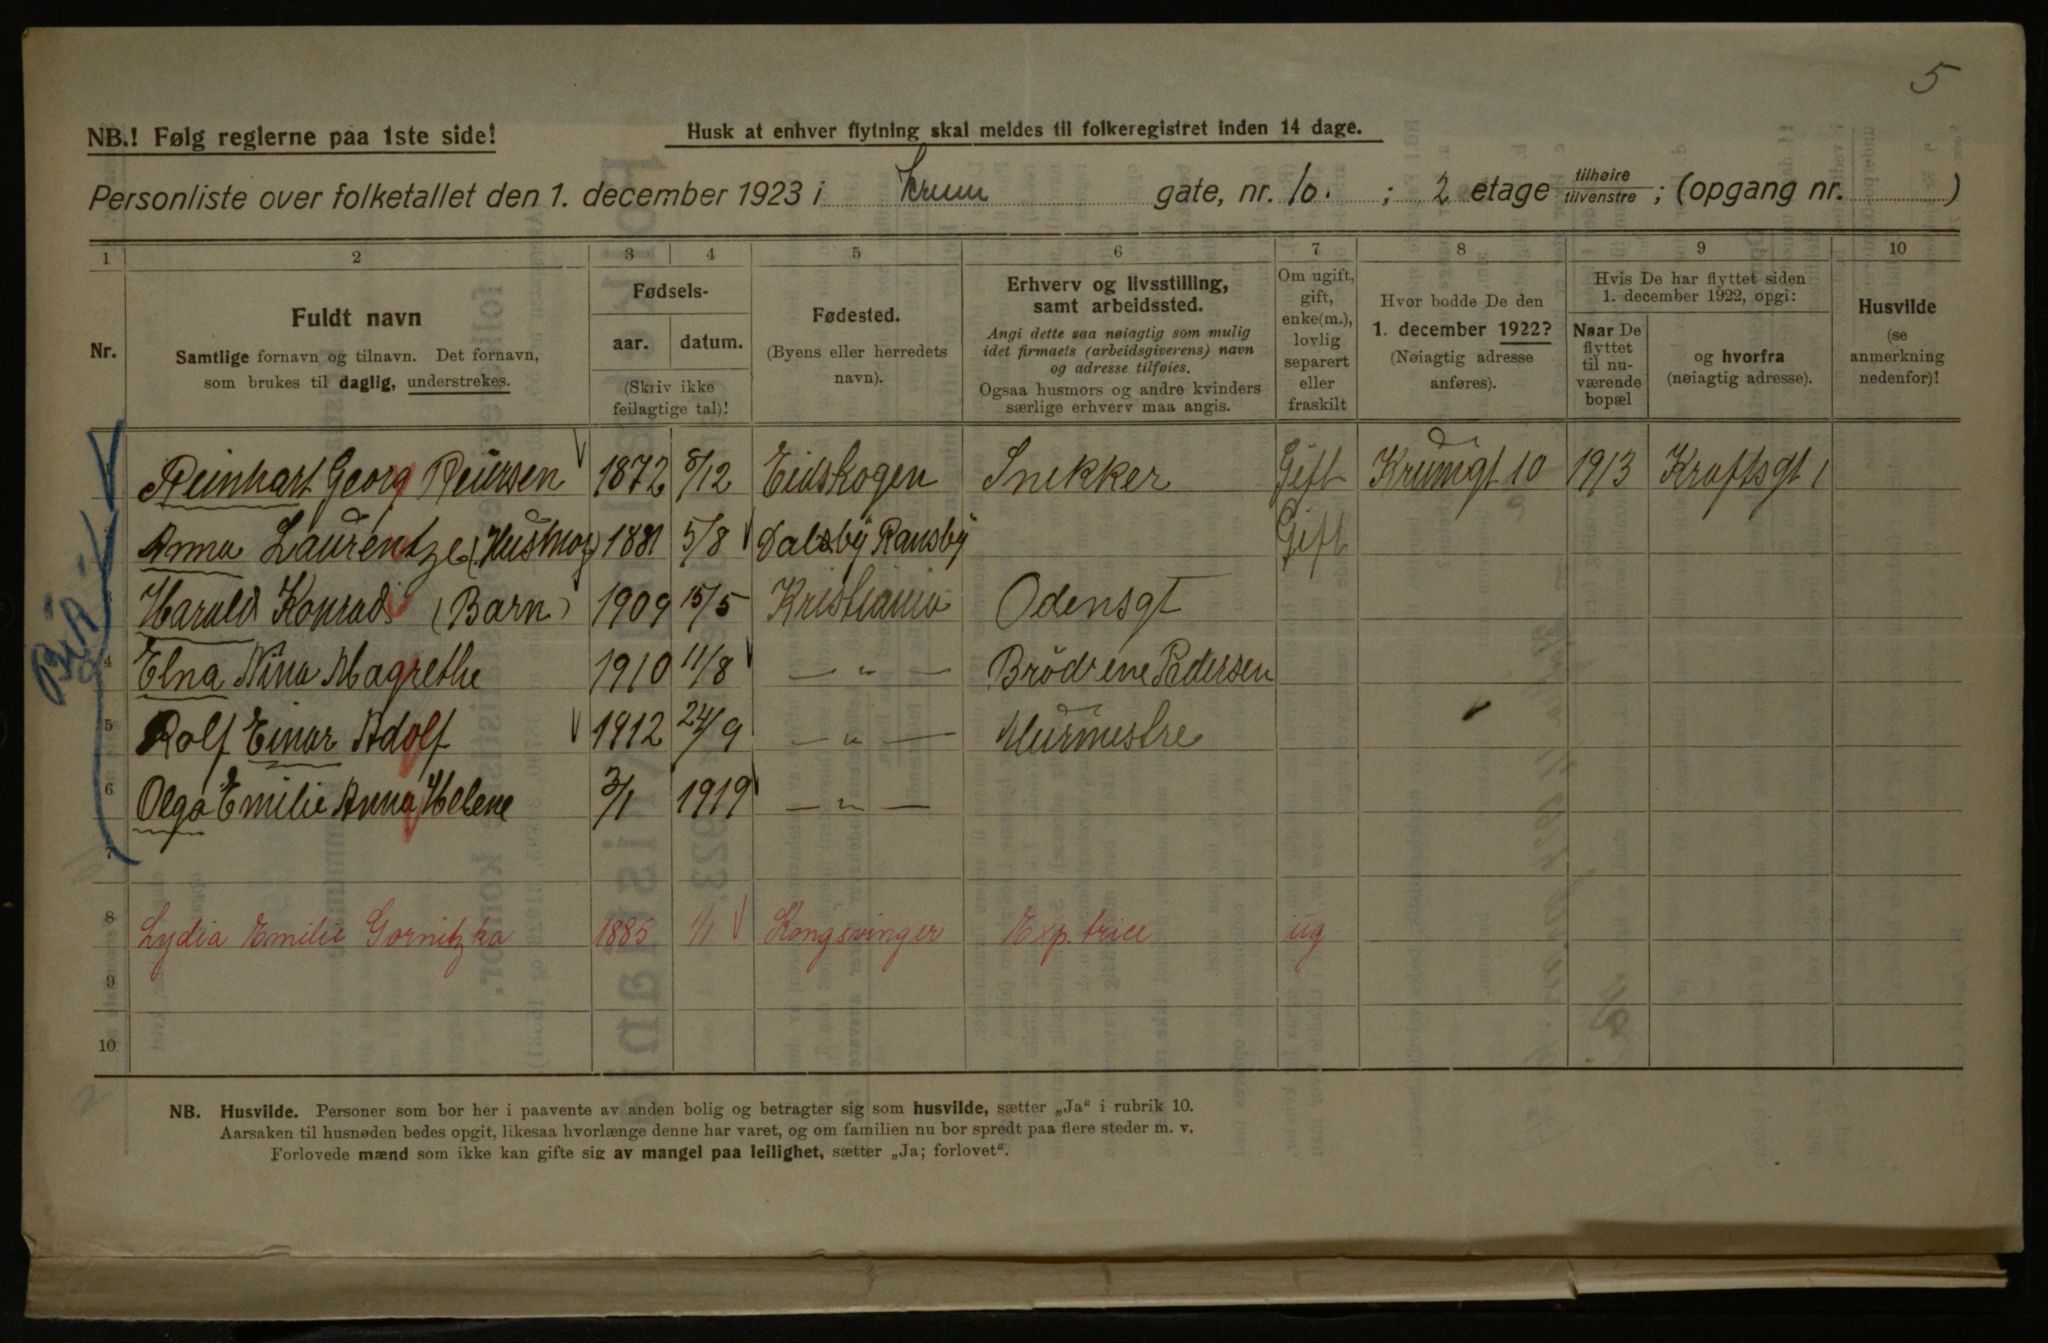 5
NB.! Følg reglerne paa 1ste side!
Husk at enhver flytning skal meldes til folkeregistret inden 14 dage.
Personliste over folketallet den 1. december 1923 i Krum gate, nr. 10. ; 2 etage tilhøire tilvenstre ; (opgang nr. )
1 2 3 4 5 6 7 8 9 10
Nr.
Fuldt navn
Samtlige fornavn og tilnavn. Det fornavn,
som brukes til daglig, understrekes.
Fødsels-
aar. datum.
(Skriv ikke
feilagtige tal)!
Fødested.
(Byens eller herredets
navn).
Erhverv og livsstilling,
samt arbeidssted.
Angi dette saa nøiagtig som mulig
idet firmaets (arbeidsgiverens) navn
og adresse tilføies.
Ogsaa husmors og andre kvinders
særlige erhverv maa angis.
Om ugift,
gift,
enke(m.),
lovlig
separert
eller
fraskilt
Hvor bodde De den
1. december 1922?
(Nøiagtig adresse
anføres).
Hvis De har flyttet siden
1. december 1922, opgi:
Naar De
flyttet
til nu-
værende
bopæl
og hvorfra
(nøiagtig adresse).
Husvilde
(se
anmerkning
nedenfor)!
Reinhart Georg Reiersen 1872 8/12 Eidskogen Snekker Gift Krumgt 10 1913 Kraftsgt 1
Anna Laurentze (Husmor) 1881 5/8 Dalsby Ransby Gift
Harald Konrad (Barn) 1909 15/5 Kristiania Odensgt
4 Elna Nina Magrethe 1910 11/8 — " — Brödrene Pedersen
5 Rolf Einar Adolf 1912 24/9 — " — Murmestre
6 Olga Emilie Anna Helene 3/1 1919 — " —
7
8 Lydia Emilie Gornitzka 1885 1/1 Kongsvinger Exp.trice ug
9
10
NB. Husvilde. Personer som bor her i paavente av anden bolig og betragter sig som husvilde, sætter „Ja“ i rubrik 10.
Aarsaken til husnøden bedes opgit, likesaa hvorlænge denne har varet, og om familien nu bor spredt paa flere steder m. v.
Forlovede mænd som ikke kan gifte sig av mangel paa leilighet, sætter „Ja; forlovet“.